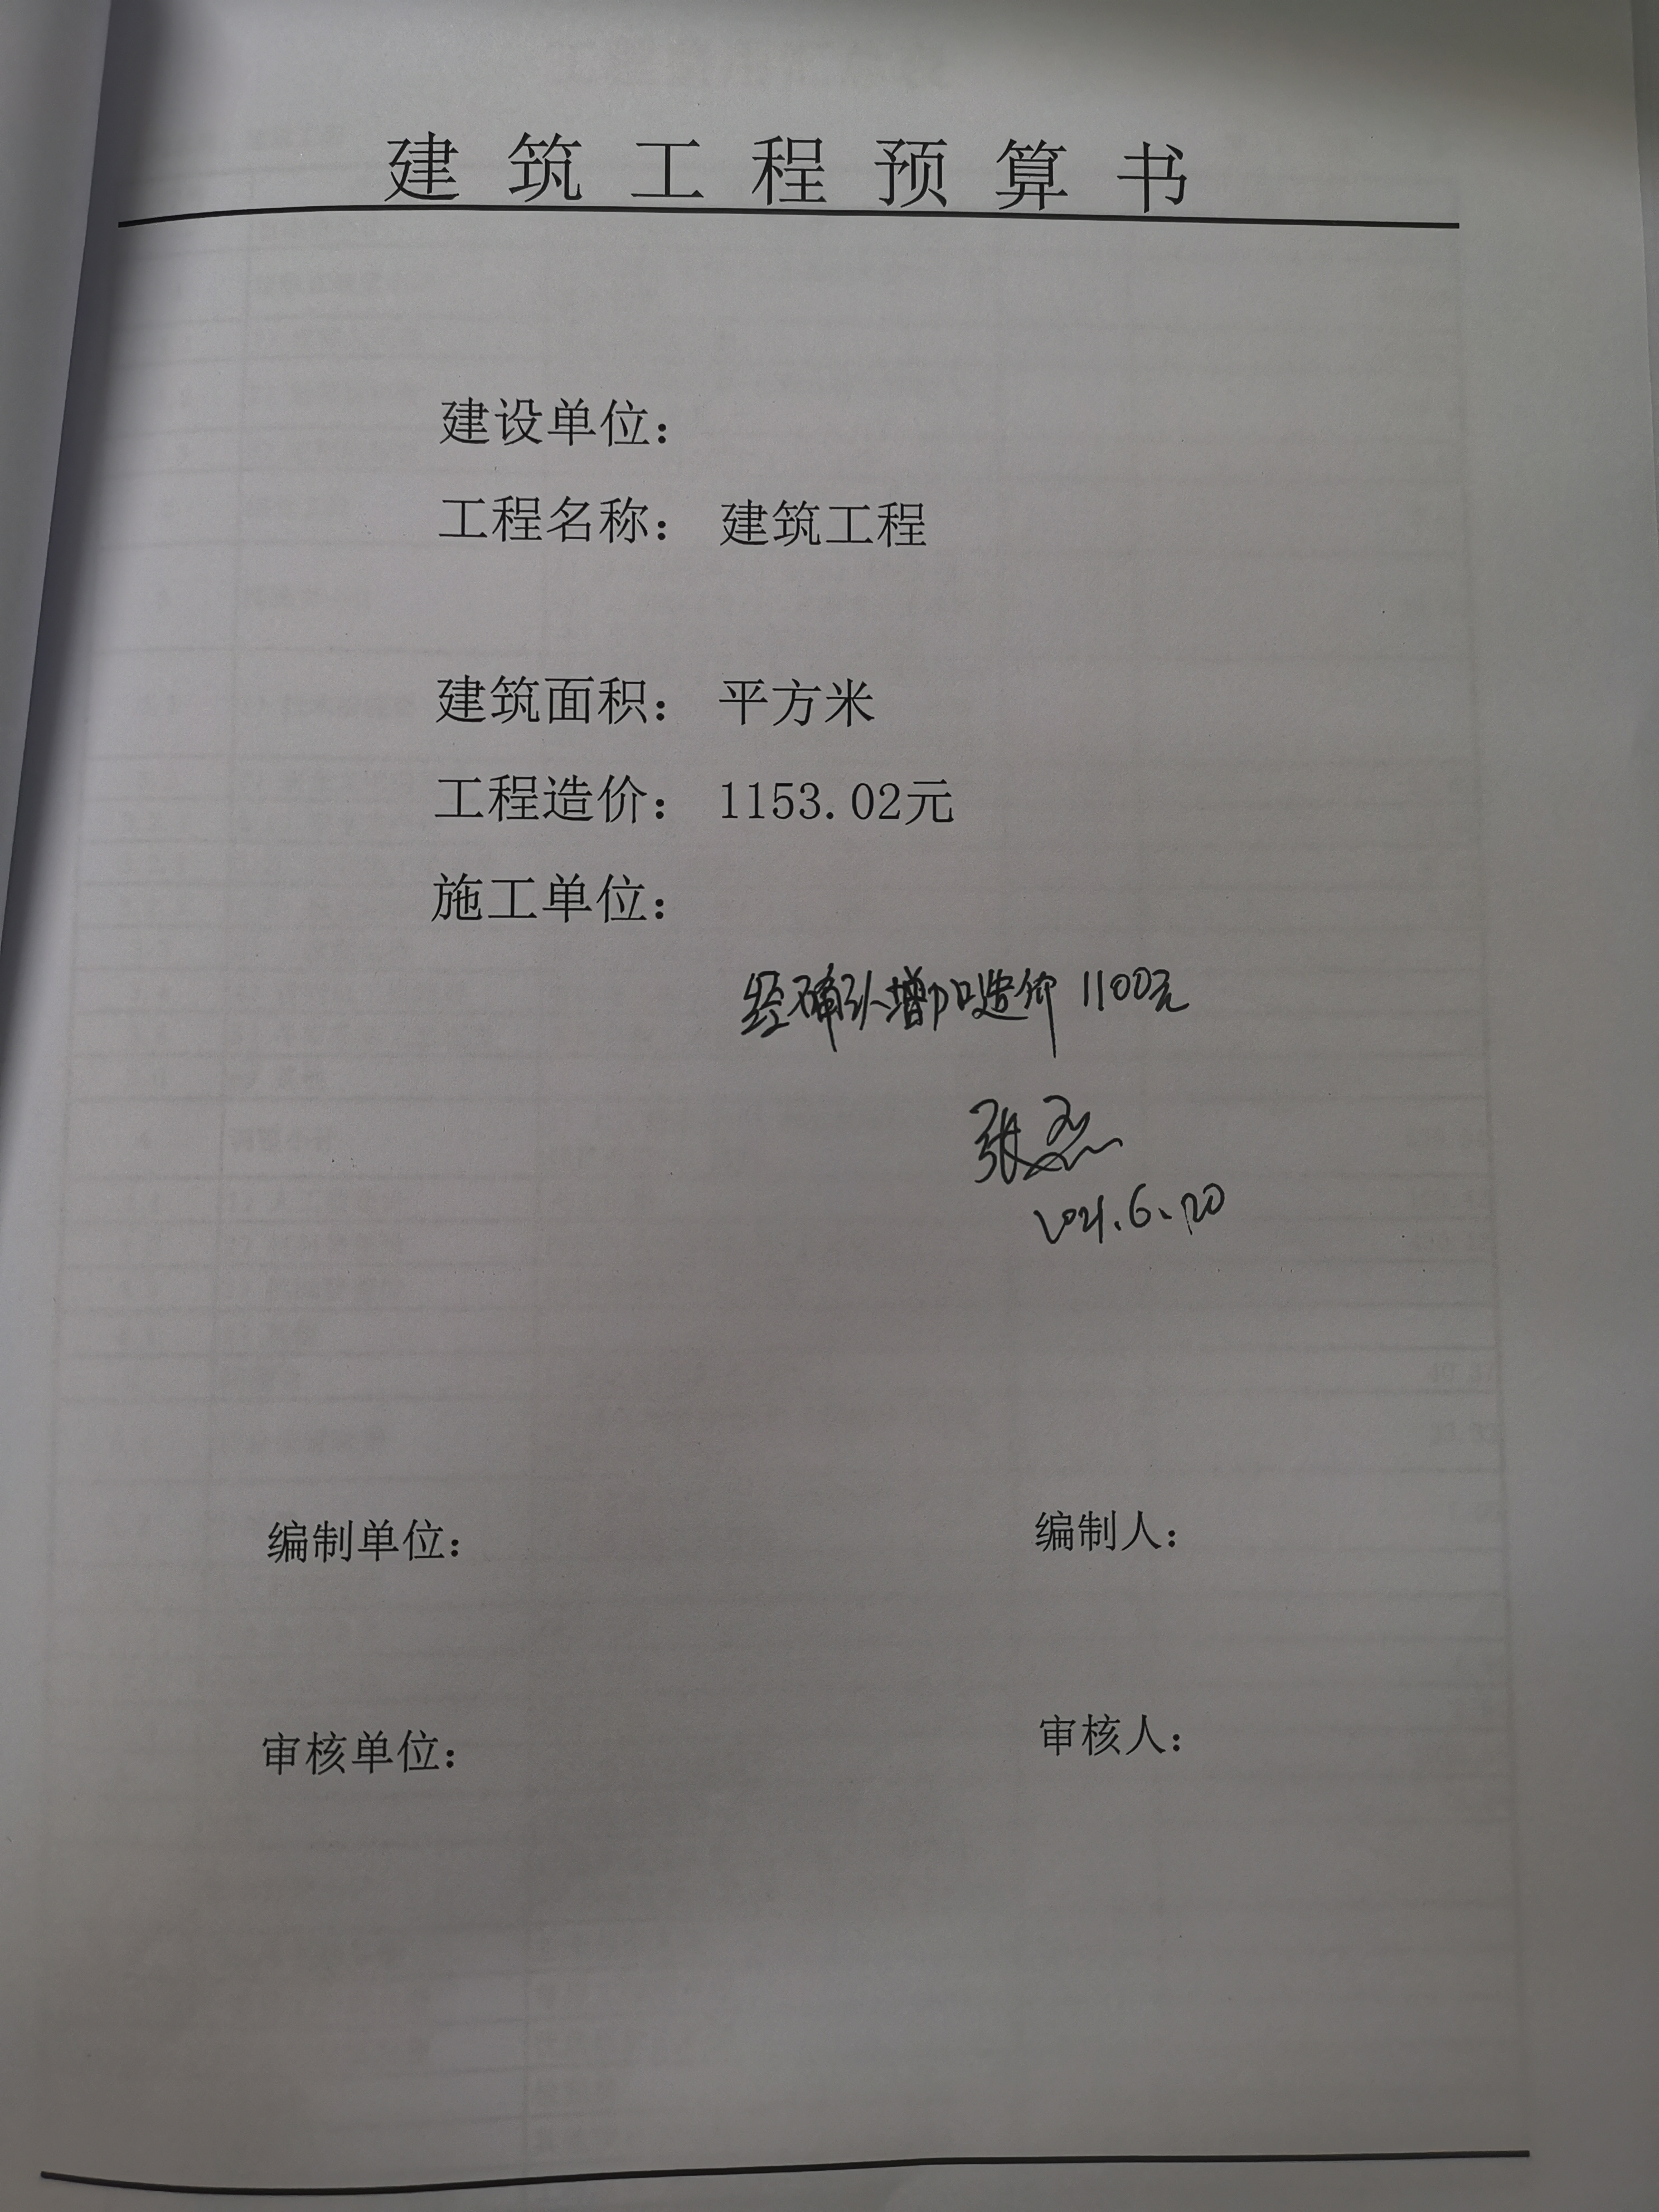 建筑工程预算书
建设单位：
工程名称： 建筑工程
建筑面积： 平方米
工程造价： 1153.02元
施工单位：
经确认增加造价1100元
张磊
2021.6.20
编制单位： 编制人：
审核单位： 审核人：